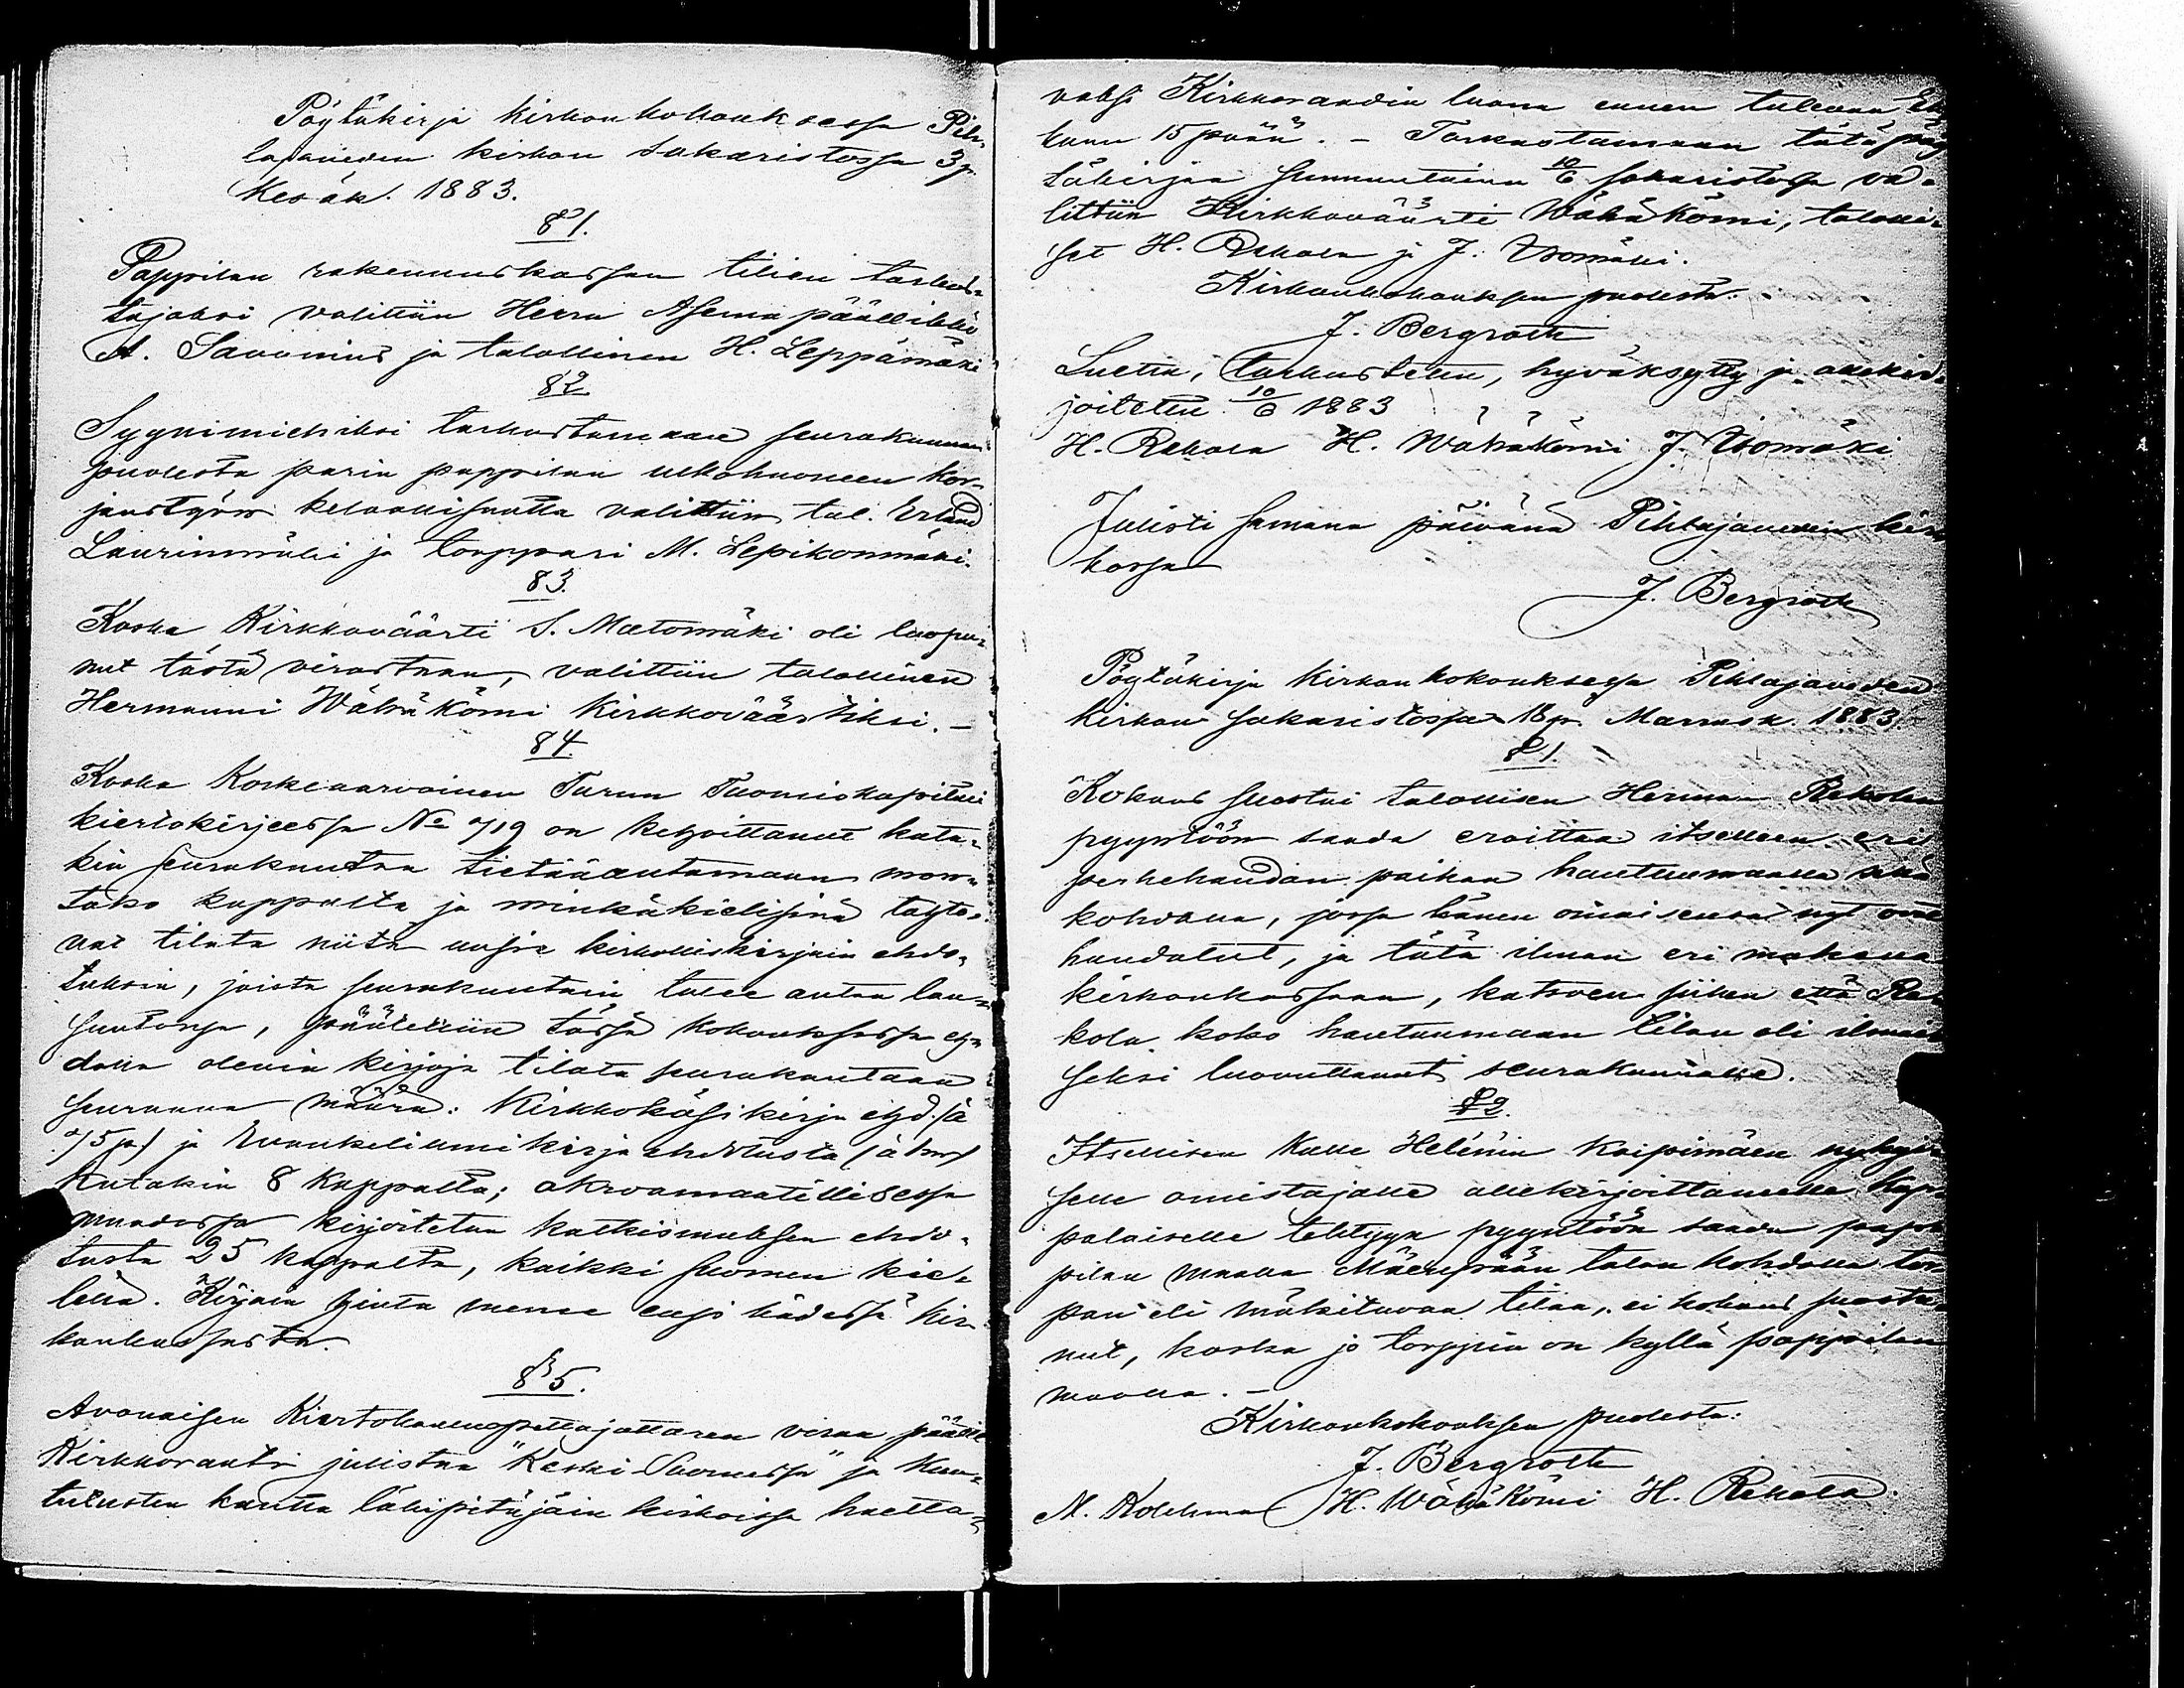 Pöytäkirja kirkonkokouksessa Pih-
lajaveden kirkon sakaristossa 3 p.
Kesäk. 1883.
§ 1.
Pappilan rakennuskassan tilien tarkas-
tajaksi valittiin Herra Asemapäällikkö
A. Savonius ja talollinen H. Leppämäki
§ 2.
Syynimiehiksi tarkastamaan seurakunnan
puolesta parin pappilan ulkohuoneen kor-
jaustyön kelvollisuutta valittiin tal. Erland
Laurinmäki ja torppari M. Lepikonmäki.
§ 3.
Koska Kirkkoväärti S. Metomäki oli luopu-
nut tästä virastaan, valittiin talollinen
Hermanni Wähäkömi Kirkkoväärtiksi. –
§ 4.
Koska Korkeaarvoinen Turun Tuomiokapituli
kiertokirjeessä No 719 on kehoittanut kuta-
kin seurakuntaa tietää antamaan mon-
tako kappaletta ja minkäkielisinä tahto-
vat tilata niitä uusia kirkolliskirjain ehdo-
tuksia, joista seurakuntain tulee antaa lau-
suntonsa, päätettiin tässä kokouksessa eh-
dolla olevia kirjoja tilata seurakuntaan
seuraava määrä: Kirkkokäsikirja ehd. (à
75 p) ja Evankeliumikirja ehdotusta (à 1 m)
kutakin 8 kappaletta; akroamaatillisessa
muodossa kirjoitetun katkismuksen ehdo-
tusta 25 kappaletta, kaikki suomen kie-
lellä. Kirjain hinta menee ensi kädessä kir-
konkassasta.
§ 5.
Avonaisen Kiertokoulunopettajattaren viran päätti
Kirkkoraati julistaa "Keski-Suomessa" ja kuu-
tutusten kautta lähipitäjäin kirkoissa haetta-
vaksi Kirkkoraadin luona ennen tulevan
kuun 15 päivää. – Tarkastamaan tätä pöy
täkirjaa sunnuntaina 10/6 sakaristossa va-
littiin Kirkkoväärti Wähäkömi, talolli-
set H. Rekola ja J. Isomäki.
Kirkonkokouksen puolesta:
J. Bergroth
Luettu, tarkastettu, hyväksytty ja allekir-
joitettu 10/6 1883
H. Rekola H. Wähäkömi J. Isomäki
Julisti samana päivänä Pihlajaveden kir
kossa
J. Bergroth
Pöytäkirja kirkonkokouksessa Pihlajaveden
kirkon sakaristossa 18 p. Marrask. 1883.
§ 1.
Kokous suostui talollisen Herman Rekolan
pyyntöön saada eroittaa itselleen eri
perhehaudan paikan hautuumaalla sillä
kohdalla, jossa hänen omaisensa nyt ovat
haudatut, ja tätä ilman eri maksua
kirkonkassaan, katsoen siihen että Re
kola koko hautuumaan tilan oli ilmai
seksi luovuttanut seurakunnalle.
§ 2.
Itsellisen Kalle Helénin Koipimäen nykyi
selle omistajalle allekirjoittaneelle kap
palaiselle tehtyyn pyyntöön saada pap
pilan maalla Mäenpään talon kohdalla tor
pan eli mäkituvan tilaa, ei kokous suostu
nut, koska jo torppia on kyllä pappilan
maalla. –
Kirkonkokouksen puolesta:
J. Bergroth
H. Wähäkömi H. Rekola